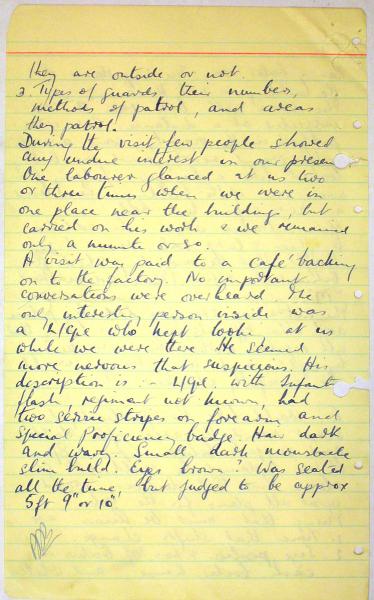 they are outside or not.
3. Types of guards, their numbers,
methods of patrol, and areas
they patrol.
During the visit few people showed
any undue interest in our presen
One labourer glanced at us two
or three times when we were in
one place near the buildings, but
carried on his work & we remained
only a minute or so.
A visit was paid to a café backing
on to the factory. No important
conversations were overheard. The
only interesting person inside was
a L/Cpl who kept looking at us
while we were there. He seemed
more nervous that suspicious. His
description is :- L/Cpl. with Infantry
flash, regiment not known, had
two service stripes on forearm and
Special Proficiency badge. Hair dark
and wavy. Small, dark moustache
slim build. Eyes brown? Was seated
all the time, but judged to be approx
5ft 9" or 10"